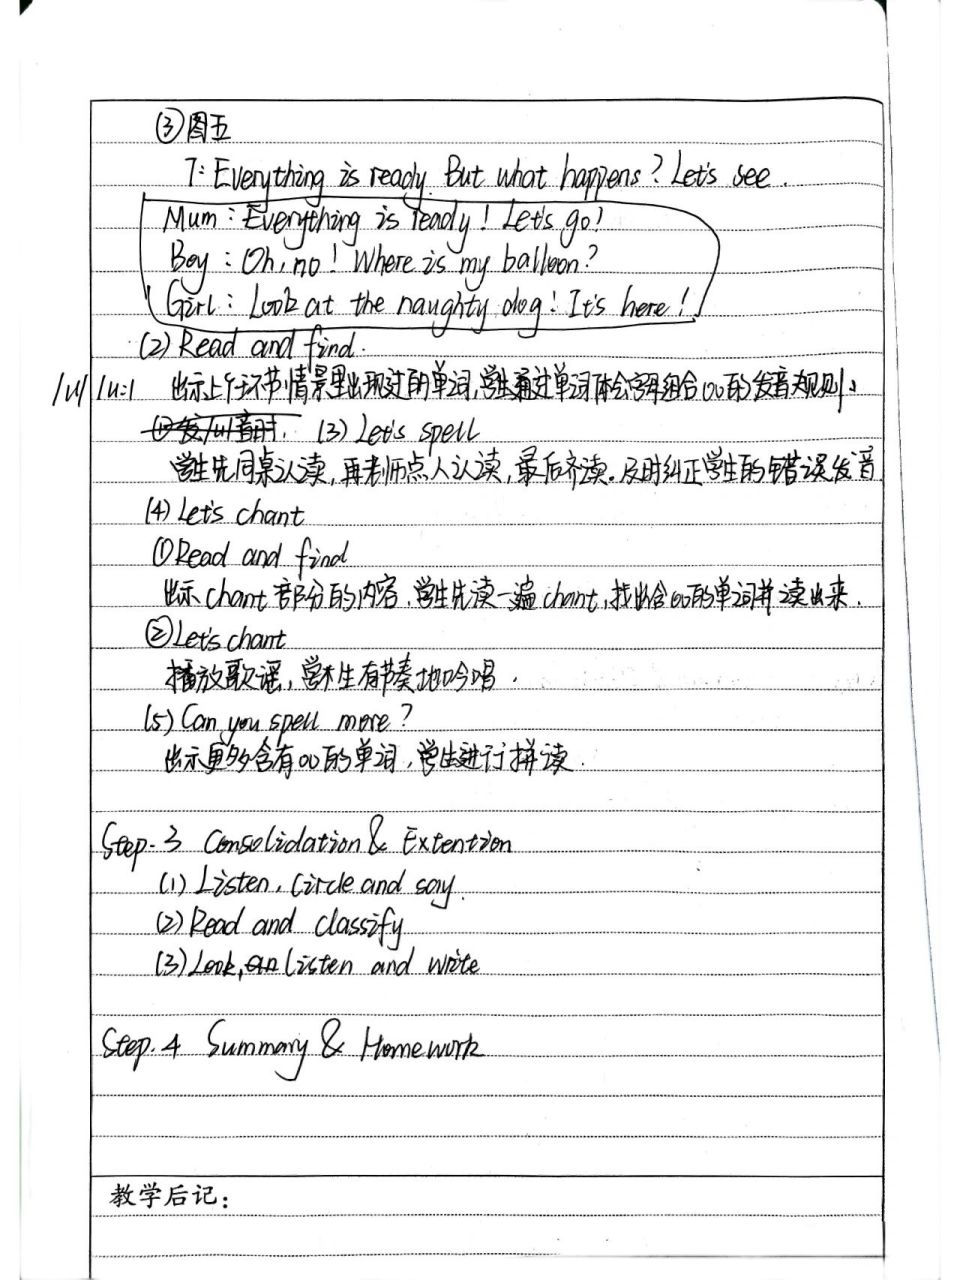 ③图五
T: Everything is ready. But what happens? Let's see.
Mum: Everything is ready! Let's go!
Boy: Oh, no! Where is my balloon?
Girl: Look at the naughty dog! It's here!
(2) Read and find.
/u/ /u:/ 出示上个环节情景里出现过的单词,学生通过单词体会字母组合oo的发音规则。
(3) Let's spell
学生先同桌认读,再老师点人认读,最后齐读。及时纠正学生的错误发音
(4) Let's chant
①Read and find
出示chant部分的内容,学生先读一遍chant,找出含oo的单词并读出来.
②Let's chant
播放歌谣,学生有节奏地吟唱.
(5) Can you spell more?
出示更多含有oo的单词,学生进行拼读.
Step.3 Consolidation & Extention
(1) Listen, Circle and say.
(2) Read and classify
(3) Look, listen and write
Step.4 Summary & Homework
教学后记：